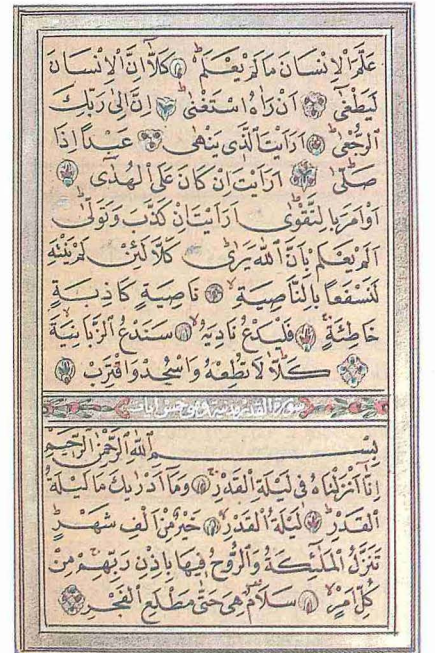 عَلَّمَ الْاِنْسَانَ مَا لَمْ يَعْلَمْ كَلَّٓا اِنَّ الْاِنْسَانَ
لَيَطْغٰىٓ اَنْ رَاٰهُ اسْتَغْنٰى اِنَّ اِلٰى رَبِّكَ
الرُّجْعٰى اَرَاَيْتَ الَّذٖى يَنْهٰى عَبْدًا اِذَا
صَلّٰى اَرَاَيْتَ اِنْ كَانَ عَلَى الْهُدٰٓى
اَوْ اَمَرَ بِالتَّقْوٰى اَرَاَيْتَ اِنْ كَذَّبَ وَتَوَلّٰى
اَلَمْ يَعْلَمْ بِاَنَّ اللّٰهَ يَرٰى كَلَّا لَئِنْ لَمْ يَنْتَهِ
لَنَسْفَعًا بِالنَّاصِيَةِ نَاصِيَةٍ كَاذِبَةٍ
خَاطِئَةٍ فَلْيَدْعُ نَادِيَهُ سَنَدْعُ الزَّبَانِيَةَ
كَلَّا لَا تُطِعْهُ وَاسْجُدْ وَاقْتَرِبْ
سورة القدر مدنية وهي خمس آيات
بِسْمِ اللّٰهِ الرَّحْمٰنِ الرَّحٖيمِ
اِنَّٓا اَنْزَلْنَاهُ فٖى لَيْلَةِ الْقَدْرِ وَمَٓا اَدْرٰيكَ مَا لَيْلَةُ
الْقَدْرِ لَيْلَةُ الْقَدْرِ خَيْرٌ مِنْ اَلْفِ شَهْرٍ
تَنَزَّلُ الْمَلٰٓئِكَةُ وَالرُّوحُ فٖيهَا بِاِذْنِ رَبِّهِمْ مِنْ
كُلِّ اَمْرٍ سَلَامٌ هِىَ حَتّٰى مَطْلَعِ الْفَجْرِ